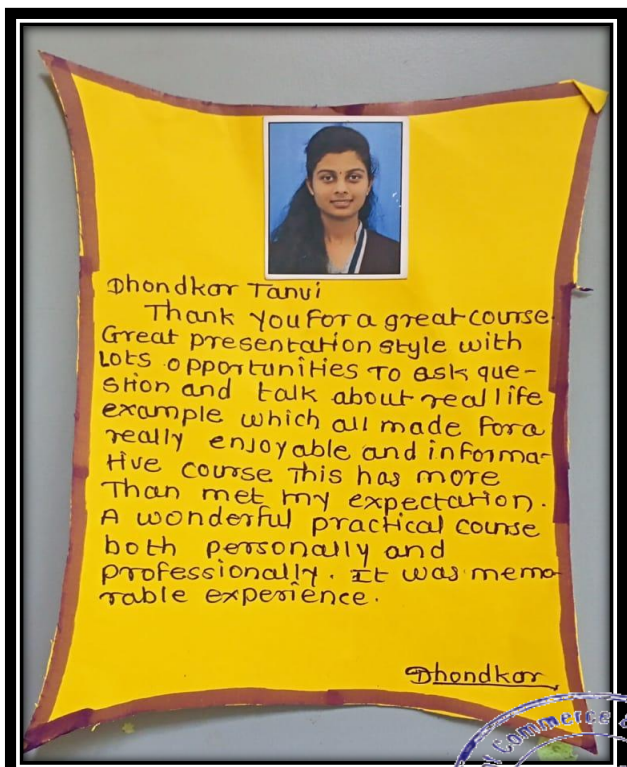 Dhondkar Tanvi
Thank you for a great course.
Great presentation style with
Lots opportunities To ask que-
stion and talk about real life
example which all made for a
really enjoyable and informa-
tive course This has more
Than met my expectation.
A wonderful practical course
both personally and
professionally. It was memo-
rable experience.
Dhondkar
Commerce &